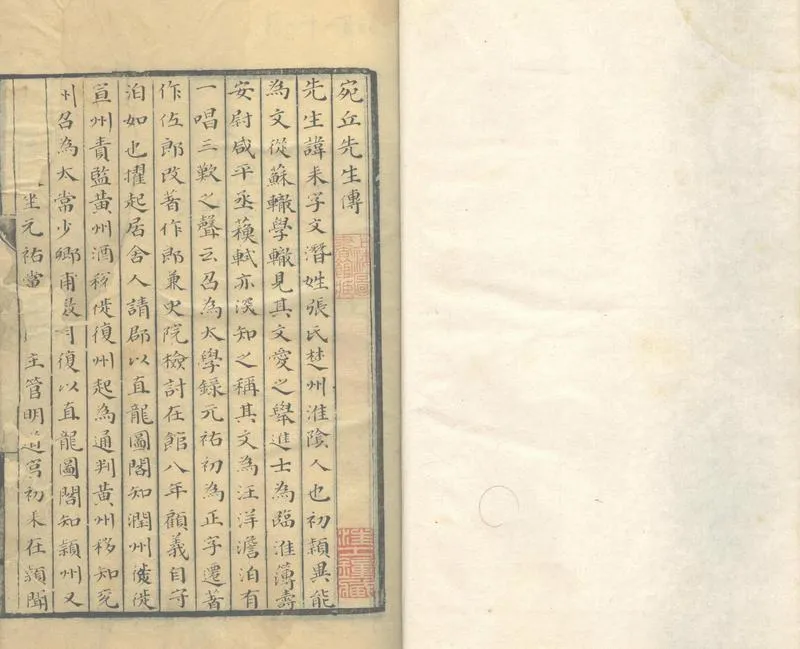 宛丘先生傳
先生諱耒字文潛姓張氏楚州淮陰人也初穎異能
為文從蘇轍學轍見其文愛之舉進士為臨淮簿壽
安尉咸平丞蘇軾亦深知之稱其文為汪洋澹泊有
一唱三歎之聲云召為太學録元祐初為正字遷著
作佐郎改著作郎兼史院檢討在館八年顧義自守
泊如也擢起居舍人請郡以直龍圖閣知潤州徙
宣州責監黃州酒稅徙復州起為通判黃州移知兖
州召為太常少卿甫數月復以直龍圖閣知潁州又
坐元祐黨 主管明道宮初耒在潁聞